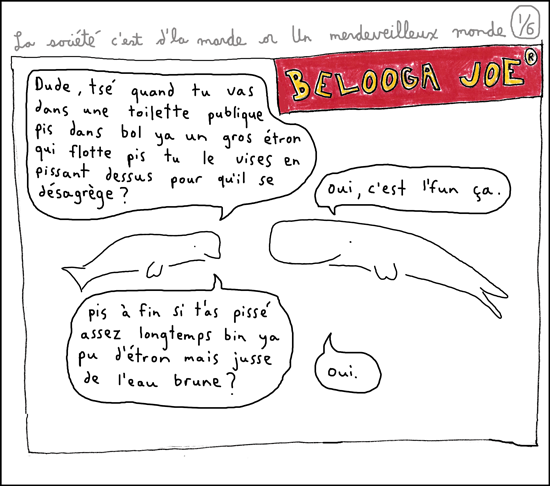 La société c'est d'la marde or Un merdeveilleux monde 1/6
BELOOGA JOE ®
Dude, tsé quand tu vas
dans une toilette publique
pis dans bol ya un gros étron
qui flotte pis tu le vises en
pissant dessus pour qu'il se
désagrège?
Oui, c'est l'fun ça.
pis à fin si t'as pissé
assez longtemps bin ya
pu d'étron mais jusse
de l'eau brune?
Oui.